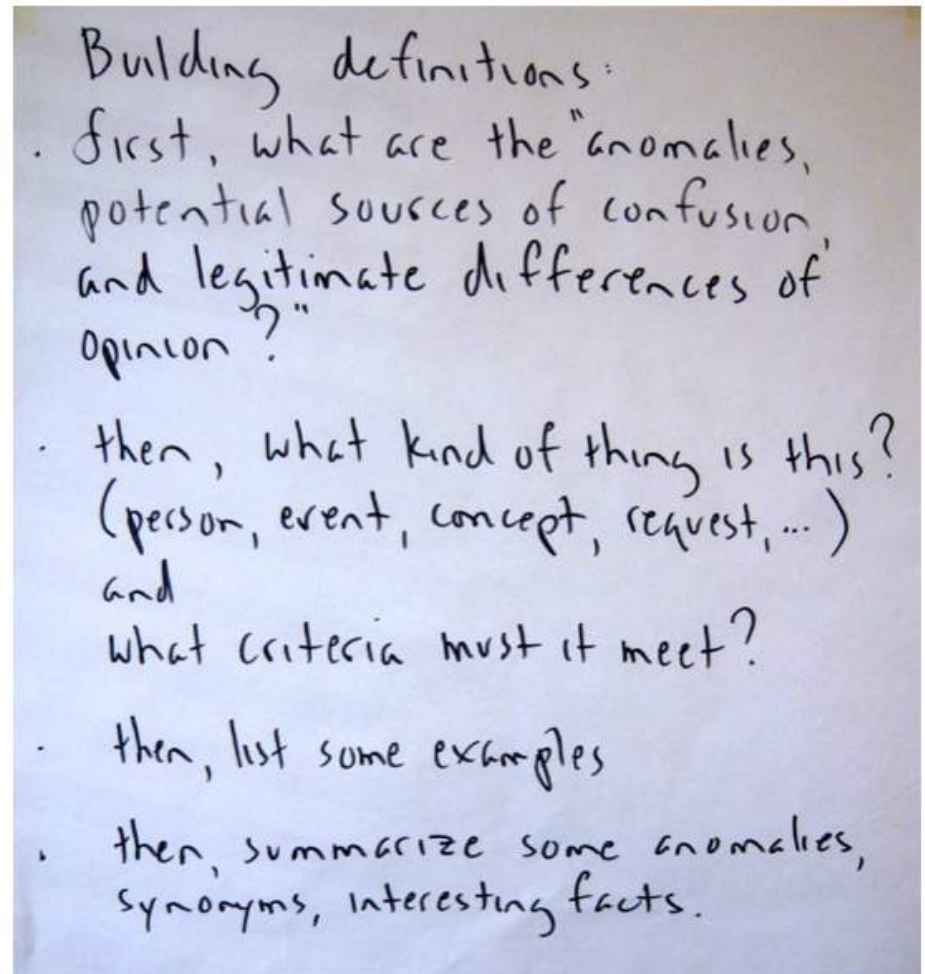 Building definitions:
. first, what are the "anomalies,
potential sources of confusion,
and legitimate differences of
opinion?"
. then, what kind of thing is this?
(person, event, concept, request, ...)
and
what criteria must it meet?
. then, list some examples
. then, summarize some anomalies,
synonyms, interesting facts.